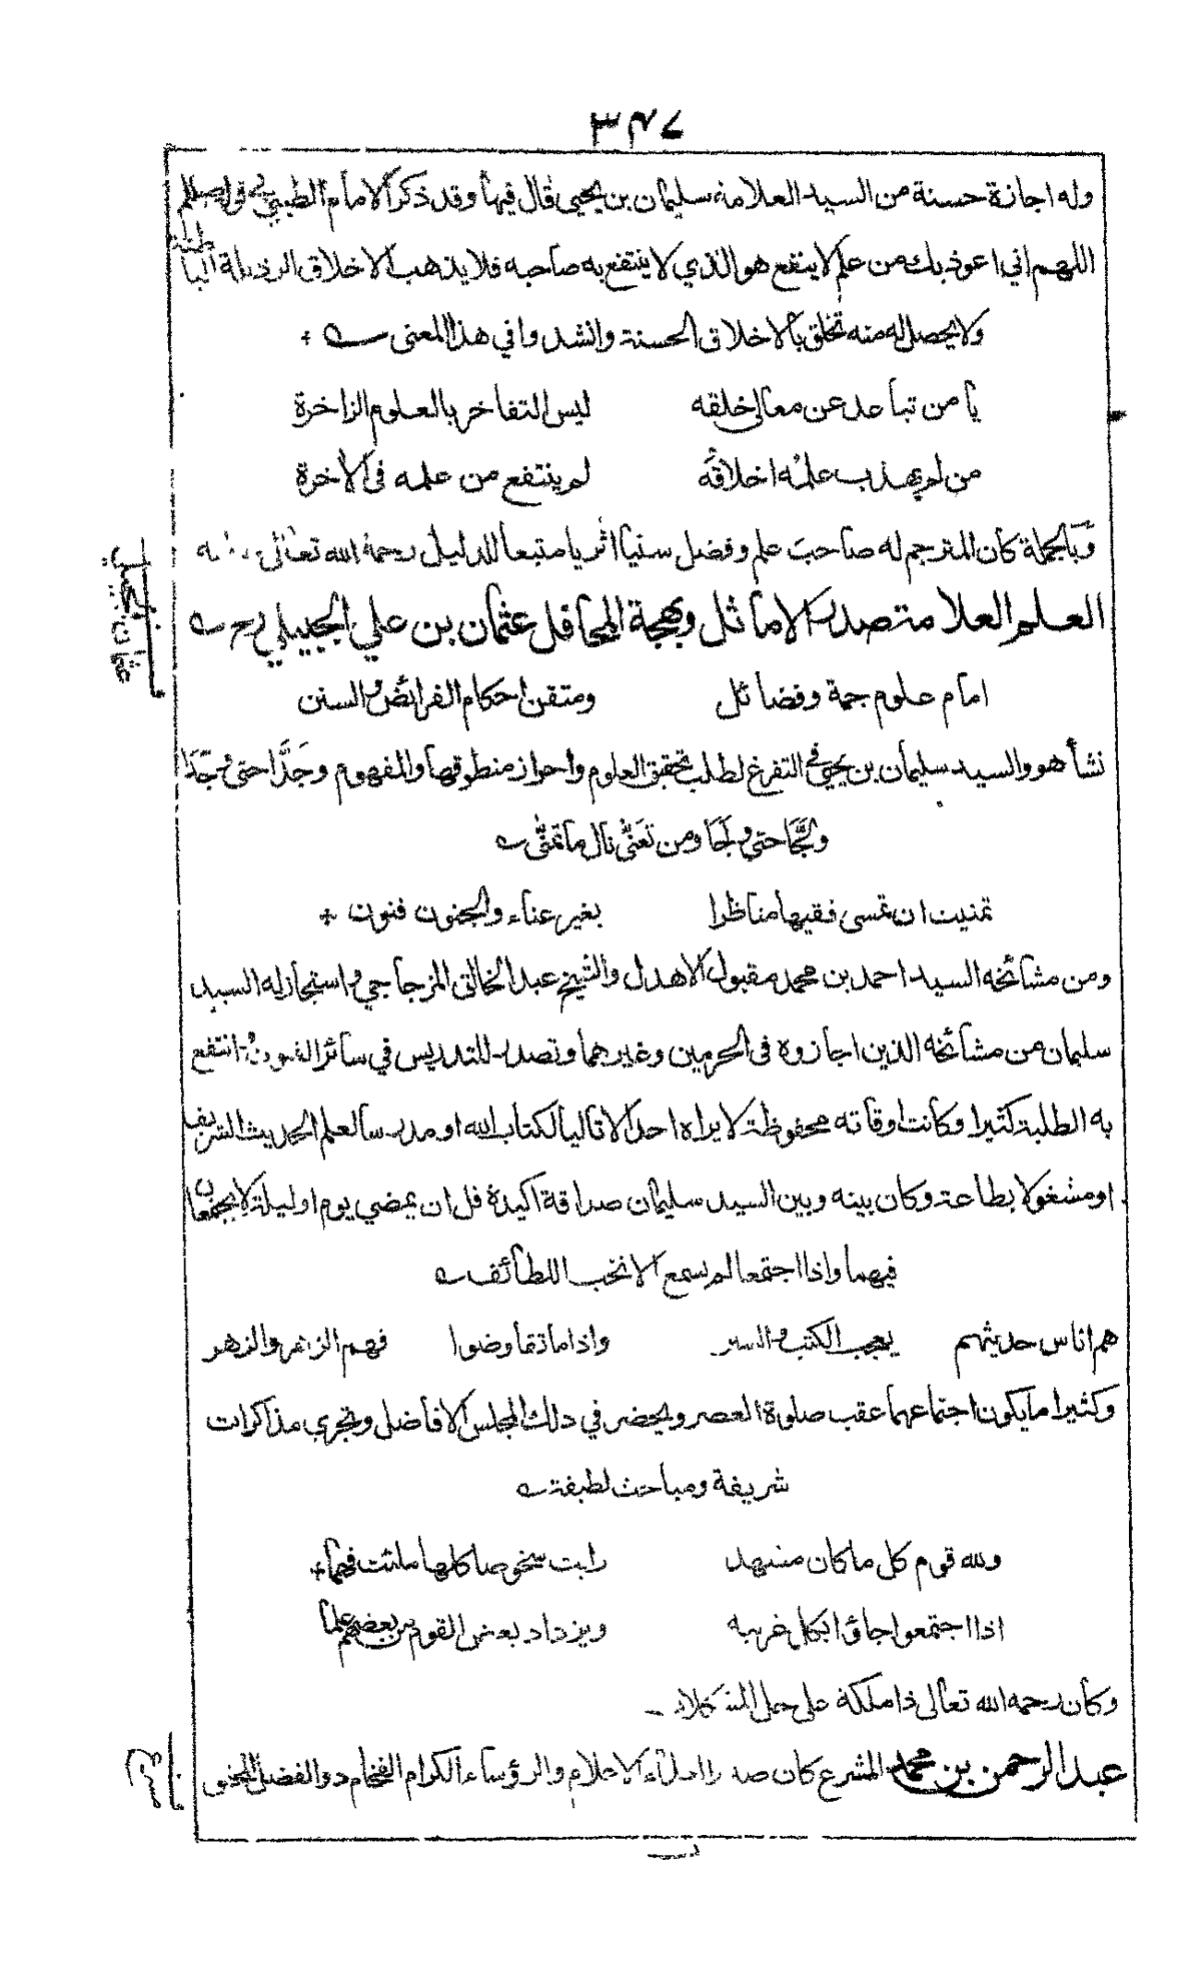 ٣٤٧
وله اجازة حسنة من السيد العلامة سليمان بن يحيى قال فيها وقد ذكر الامام الطيبي في قوله صللم
اللهم اني اعوذ بك من علم لا ينفع هو الذي لا ينتفع به صاحبه فلا يذهب الاخلاق الرذيلة الباطنة
ولا يحصل له منه تخلق بالاخلاق الحسنة وانشدوا في هذا المعنى ؎ +
يا من تباعد عن معالي خلقه ليس التفاخر بالعلوم الزاخرة
من لم يهذب علمُه اخلاقَه لم ينتفع من علمه فى الأخرة
وَبالجملة كان المترجم له صاحبَ علم وفضل سنيا اثريا متبعا للدليل رحمة الله تعالى
العلم العلامة صدر الاماثل وبهجة المحافل عثمان بن علي الجبيلي رح ؎
عثمان بن علي الجبيلي
امام علوم جمة وفضائل ومتقن احكام الفرائض والسنن
نشأ هو والسيد سليمان بن يحيى في التفرغ لطلب تحقيق العلوم واحواز منطوقها والمفهوم وجَدَّا حتى وجَدَا
ولَجَّا حتى ولَجَا ومن تعَنّٰى نال ما تمنّٰى ؎
تمنيت ان تمسى فقيها مناظرا بغير عناء والجنون فنون +
ومن مشائخه السيد احمد بن محمد مقبول الاهدل والشيخ عبد الخالق المزجاجي واستجاز له السيد
سليمان من مشائخه الذين اجازوه فى الحرمين وغيرهما وتصدر للتدريس في سائر الفنون وانتفع
به الطلبة كثيرا وكانت اوقاته محفوظة لا يراه احد الا تاليا لكتاب الله او مدرسا لعلم الحديث الشريف
او مشغولا بطاعة وكان بينه وبين السيد سليمان صداقة اكيدة قل ان يمضي يوم او ليلة لا يجتمعان
فيهما واذا اجتمعا لم يسمع الا نخب اللطائف ؎
هم اناس حديثهم يعجب الكتب والسير واذا ما تفاوضوا فهم الزهر والزهر
وكثيرا ما يكون اجتماعهما عقب صلوة العصر ويحضر في ذلك المجلس الافاضل وتجري مذاكرات
شريفة ومباحث لطيفة ؎
ولله قوم كل ما كان مشهد رايت شخوصا كلها ملئت فهما +
اذا اجتمعوا جاؤا بكل غريبه ويزداد بعض القوم من بعضهم علما
وكان رحمه الله تعالى ذا ملكة على حل المشكلات
عبد الرحمن بن محمد المشرع كان صدر العلماء الاعلام والرؤساء الكرام الفخام ذو الفضل